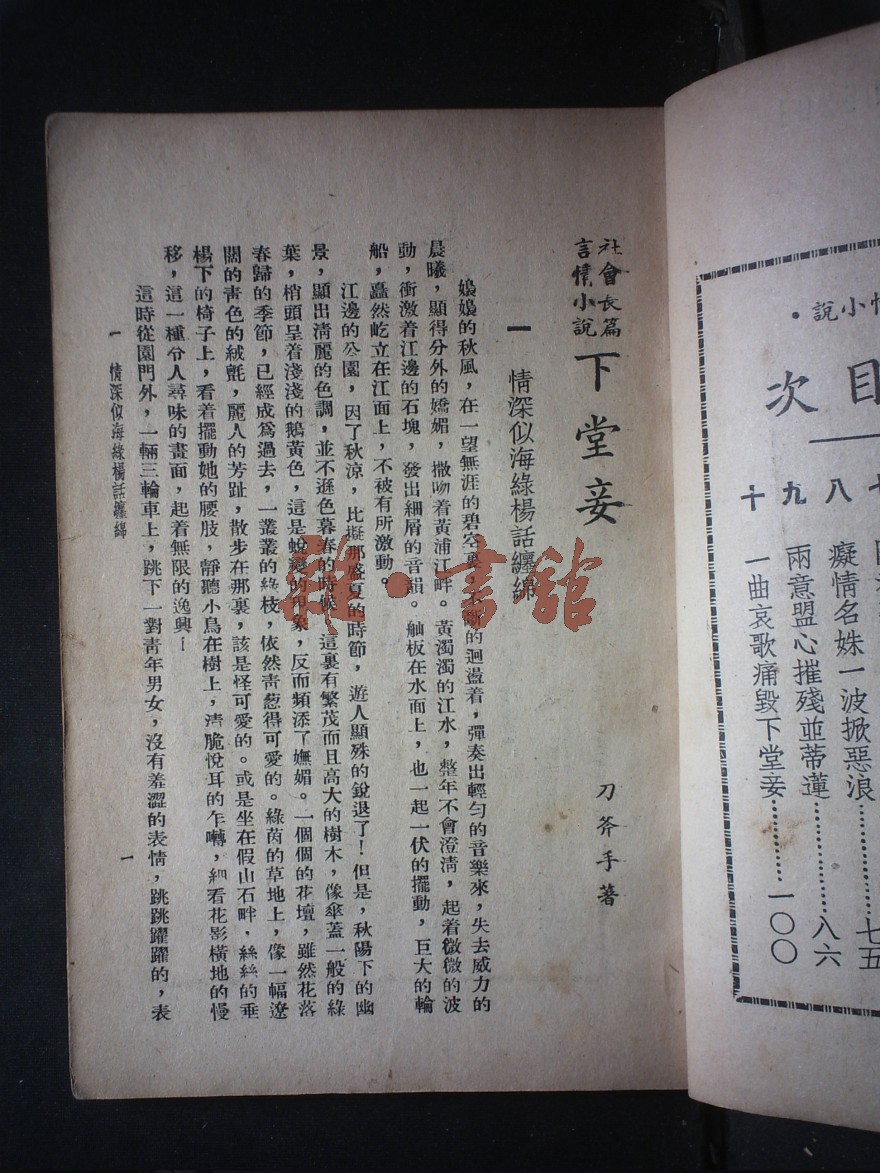 情小說・
目次
八 癡情名姝一波掀惡浪……七五
九 兩意盟心摧殘並蒂蓮……八六
十 一曲哀歌痛毀下堂妾……一〇〇
社會長篇
言情小說
下堂妾
刀斧手著
一 情深似海綠楊話纏綿
嫋嫋的秋風，在一望無涯的碧空裏，不斷的迴盪着，彈奏出輕勻的音樂來，失去威力的
晨曦，顯得分外的嬌媚，撒吻着黃浦江畔。黃濁濁的江水，整年不會澄清，起着微微的波
動，衝激着江邊的石塊，發出細屑的音韻。舢板在水面上，也一起一伏的擺動，巨大的輪
船，矗然屹立在江面上，不被有所激動。
江邊的公園，因了秋凉，比擬那盛夏的時節，遊人顯殊的銳退了！但是，秋陽下的幽
景，顯出清麗的色調，並不遜色暮春的時候。這裏有繁茂而且高大的樹木，像傘蓋一般的綠
葉，梢頭呈着淺淺的鵝黃色，這是蛻變的印象，反而頻添了嫵媚。一個個的花壇，雖然花落
春歸的季節，已經成爲過去，一叢叢的綠枝，依然靑葱得可愛的。綠茵的草地上，像一幅遼
闊的靑色的絨氈，麗人的芳趾，散步在那裏，該是怪可愛的。或是坐在假山石畔，絲絲的垂
楊下的椅子上，看着擺動她的腰肢，靜聽小鳥在樹上，淸脆悅耳的乍囀，細看花影橫地的慢
移，這一種令人尋味的畫面，起着無限的逸興！
這時從園門外，一輛三輪車上，跳下一對靑年男女，沒有羞澀的表情，跳跳躍躍的，表
一 情深似海綠楊話纏綿
一
雜・書館